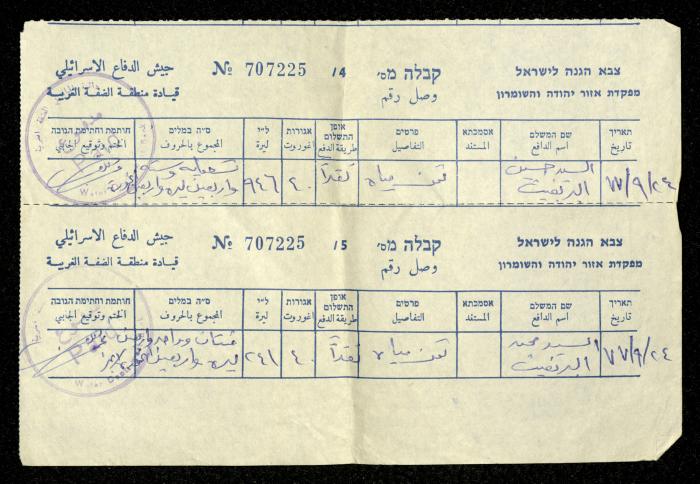 צבא הגנה לישראל
מפקדת אזור יהודה והשומרון
קבלה מס׳ 4/ 707225 №
وصل رقم
جيش الدفاع الاسرائيلي
قيادة منطقة الضفة الغربية
תאריך שם המשלם אסמכתא פרטים אופן התשלום אגורות ל״י ס״ה במלים חותמת וחתימת הגובה
تاريخ اسم الدافع المستند التفاصيل طريقة الدفع اغوروت ليرة المجموع بالحروف الختم وتوقيع الجابي
٧٧/٩/٢٤ السيد حسين ثمن مياه نقداً ٤٠ ٩٤٦
واربعين ليره
Water
צבא הגנה לישראל
מפקדת אזור יהודה והשומרון
קבלה מס׳ 5/ 707225 №
وصل رقم
جيش الدفاع الاسرائيلي
قيادة منطقة الضفة الغربية
תאריך שם המשלם אסמכתא פרטים אופן התשלום אגורות ל״י ס״ה במלים חותמת וחתימת הגובה
تاريخ اسم الدافع المستند التفاصيل طريقة الدفع اغوروت ليرة المجموع بالحروف الختم وتوقيع الجابي
٧٧/٩/٢٤ السيد محمد ثمن مياه نقداً ٤٠ ٢٤١ مئتان وواحد واربعين
ليره واربعين
Water